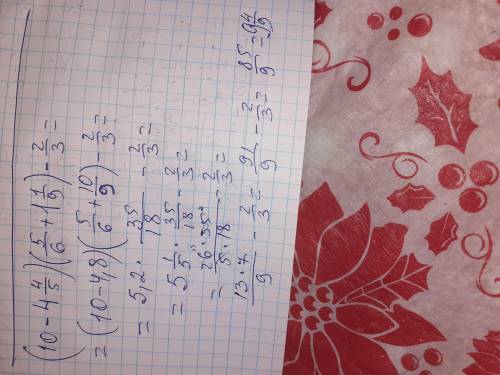 (10 - 4 4/5)(5/6 + 1 1/9) - 2/3 =
= (10 - 4,8)(5/6 + 10/9) - 2/3 =
= 5,2 · 35/18 - 2/3 =
= 5 1/5 · 35/18 - 2/3 =
= 26 · 35/5 · 18 - 2/3 =
13 · 7/9 - 2/3 = 91/9 - 2/3 = 85/9 = 9 4/9